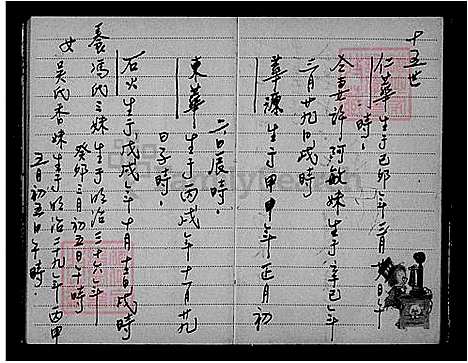 十五世
仁華生于己卯年三月廿日午
時
令妻許阿敏妹生于辛巳年
三月廿九日戌時
華源生于甲申年正月初
二日辰時
東華生于丙戌年十一月廿九
日子時
石火生于戊戌年十月十一日戌時
養馮氏三妹生于明治三十六年
癸卯三月初五日午時
女吳氏香妹生于明治三九年丙甲
五月初五日午時